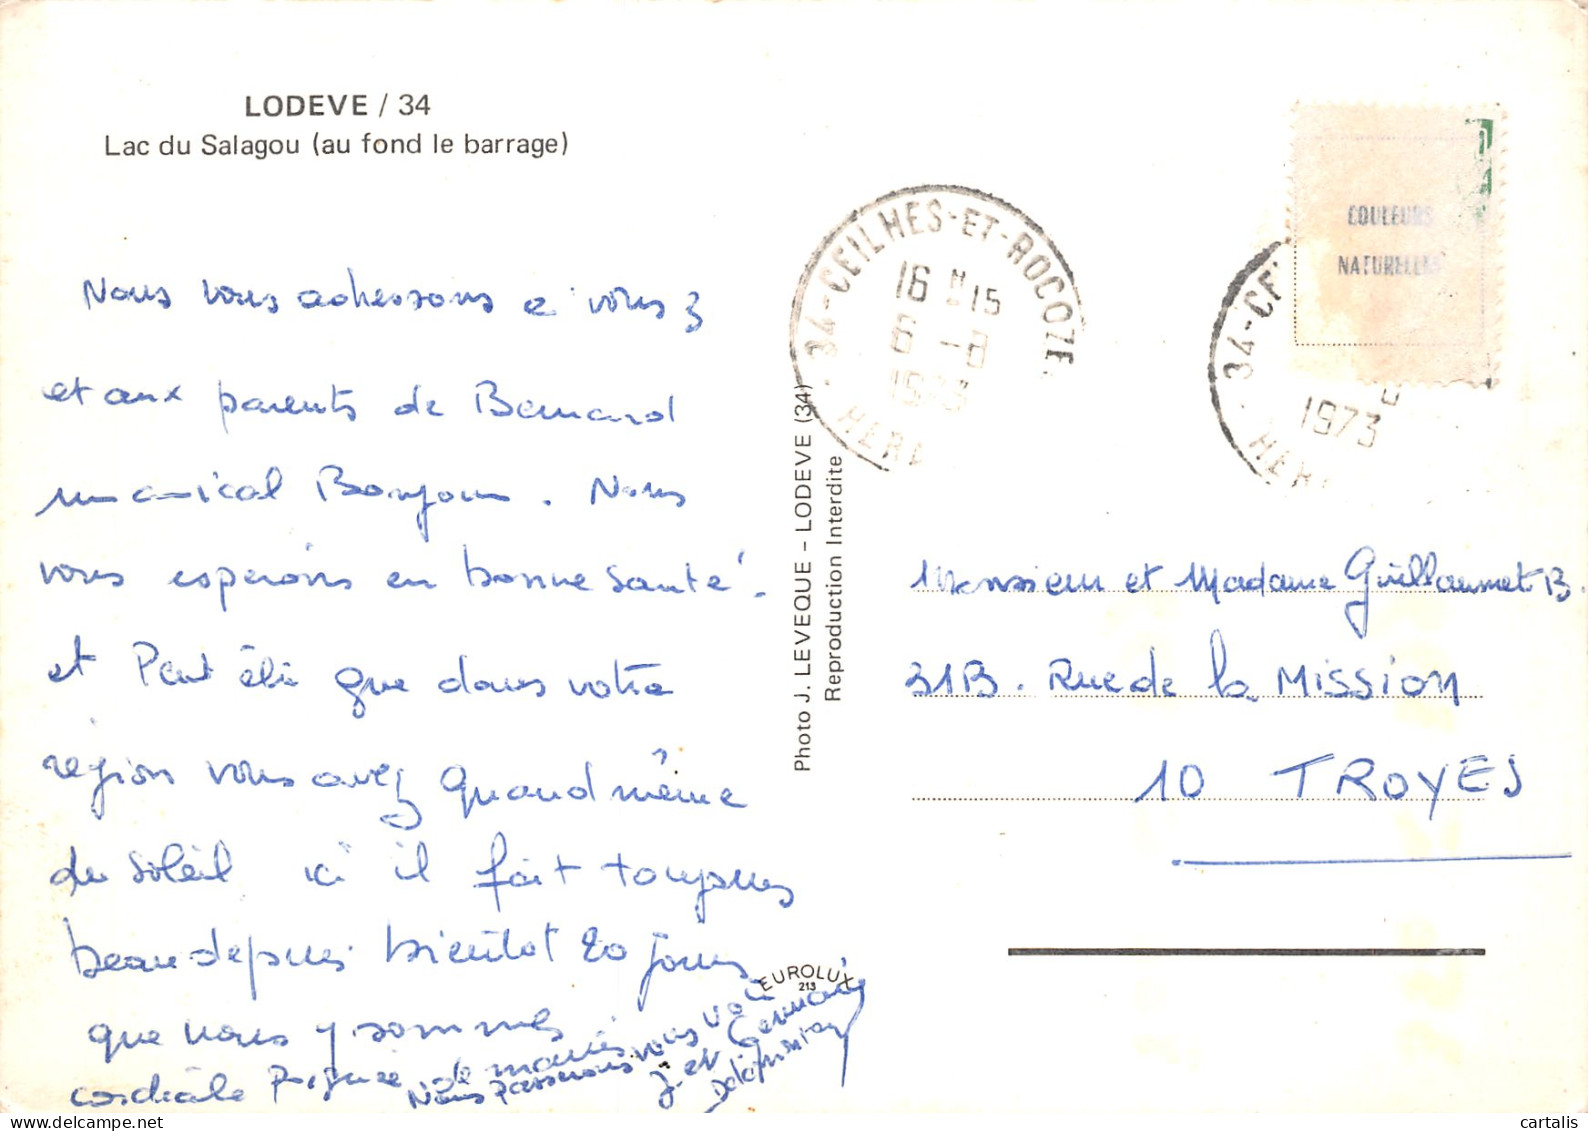 LODEVE / 34
Lac du Salagou (au fond le barrage)
Nous vous adressons a vous 3
et aux parents de Bernard
un amical Bonjour. Nous
vous esperons en bonne santé.
et Peut être que dans votre
région vous avez quand même
du soleil ici il fait toujours
beau depuis bientôt 20 jours
que nous y sommes
cordiale
Nous passerons vous voir
J. et Germaine
COULEURS
NATURELLES
34-CEILHES-ET-ROCOZE
16 H 15
6 -8
1973
HER
34-CE
1973
HER
Photo J. LEVEQUE - LODEVE (34)
Reproduction Interdite
EUROLUX
213
Monsieur et Madame Guillaumet B.
31B. Rue de la Mission
10 TROYES
cartalis